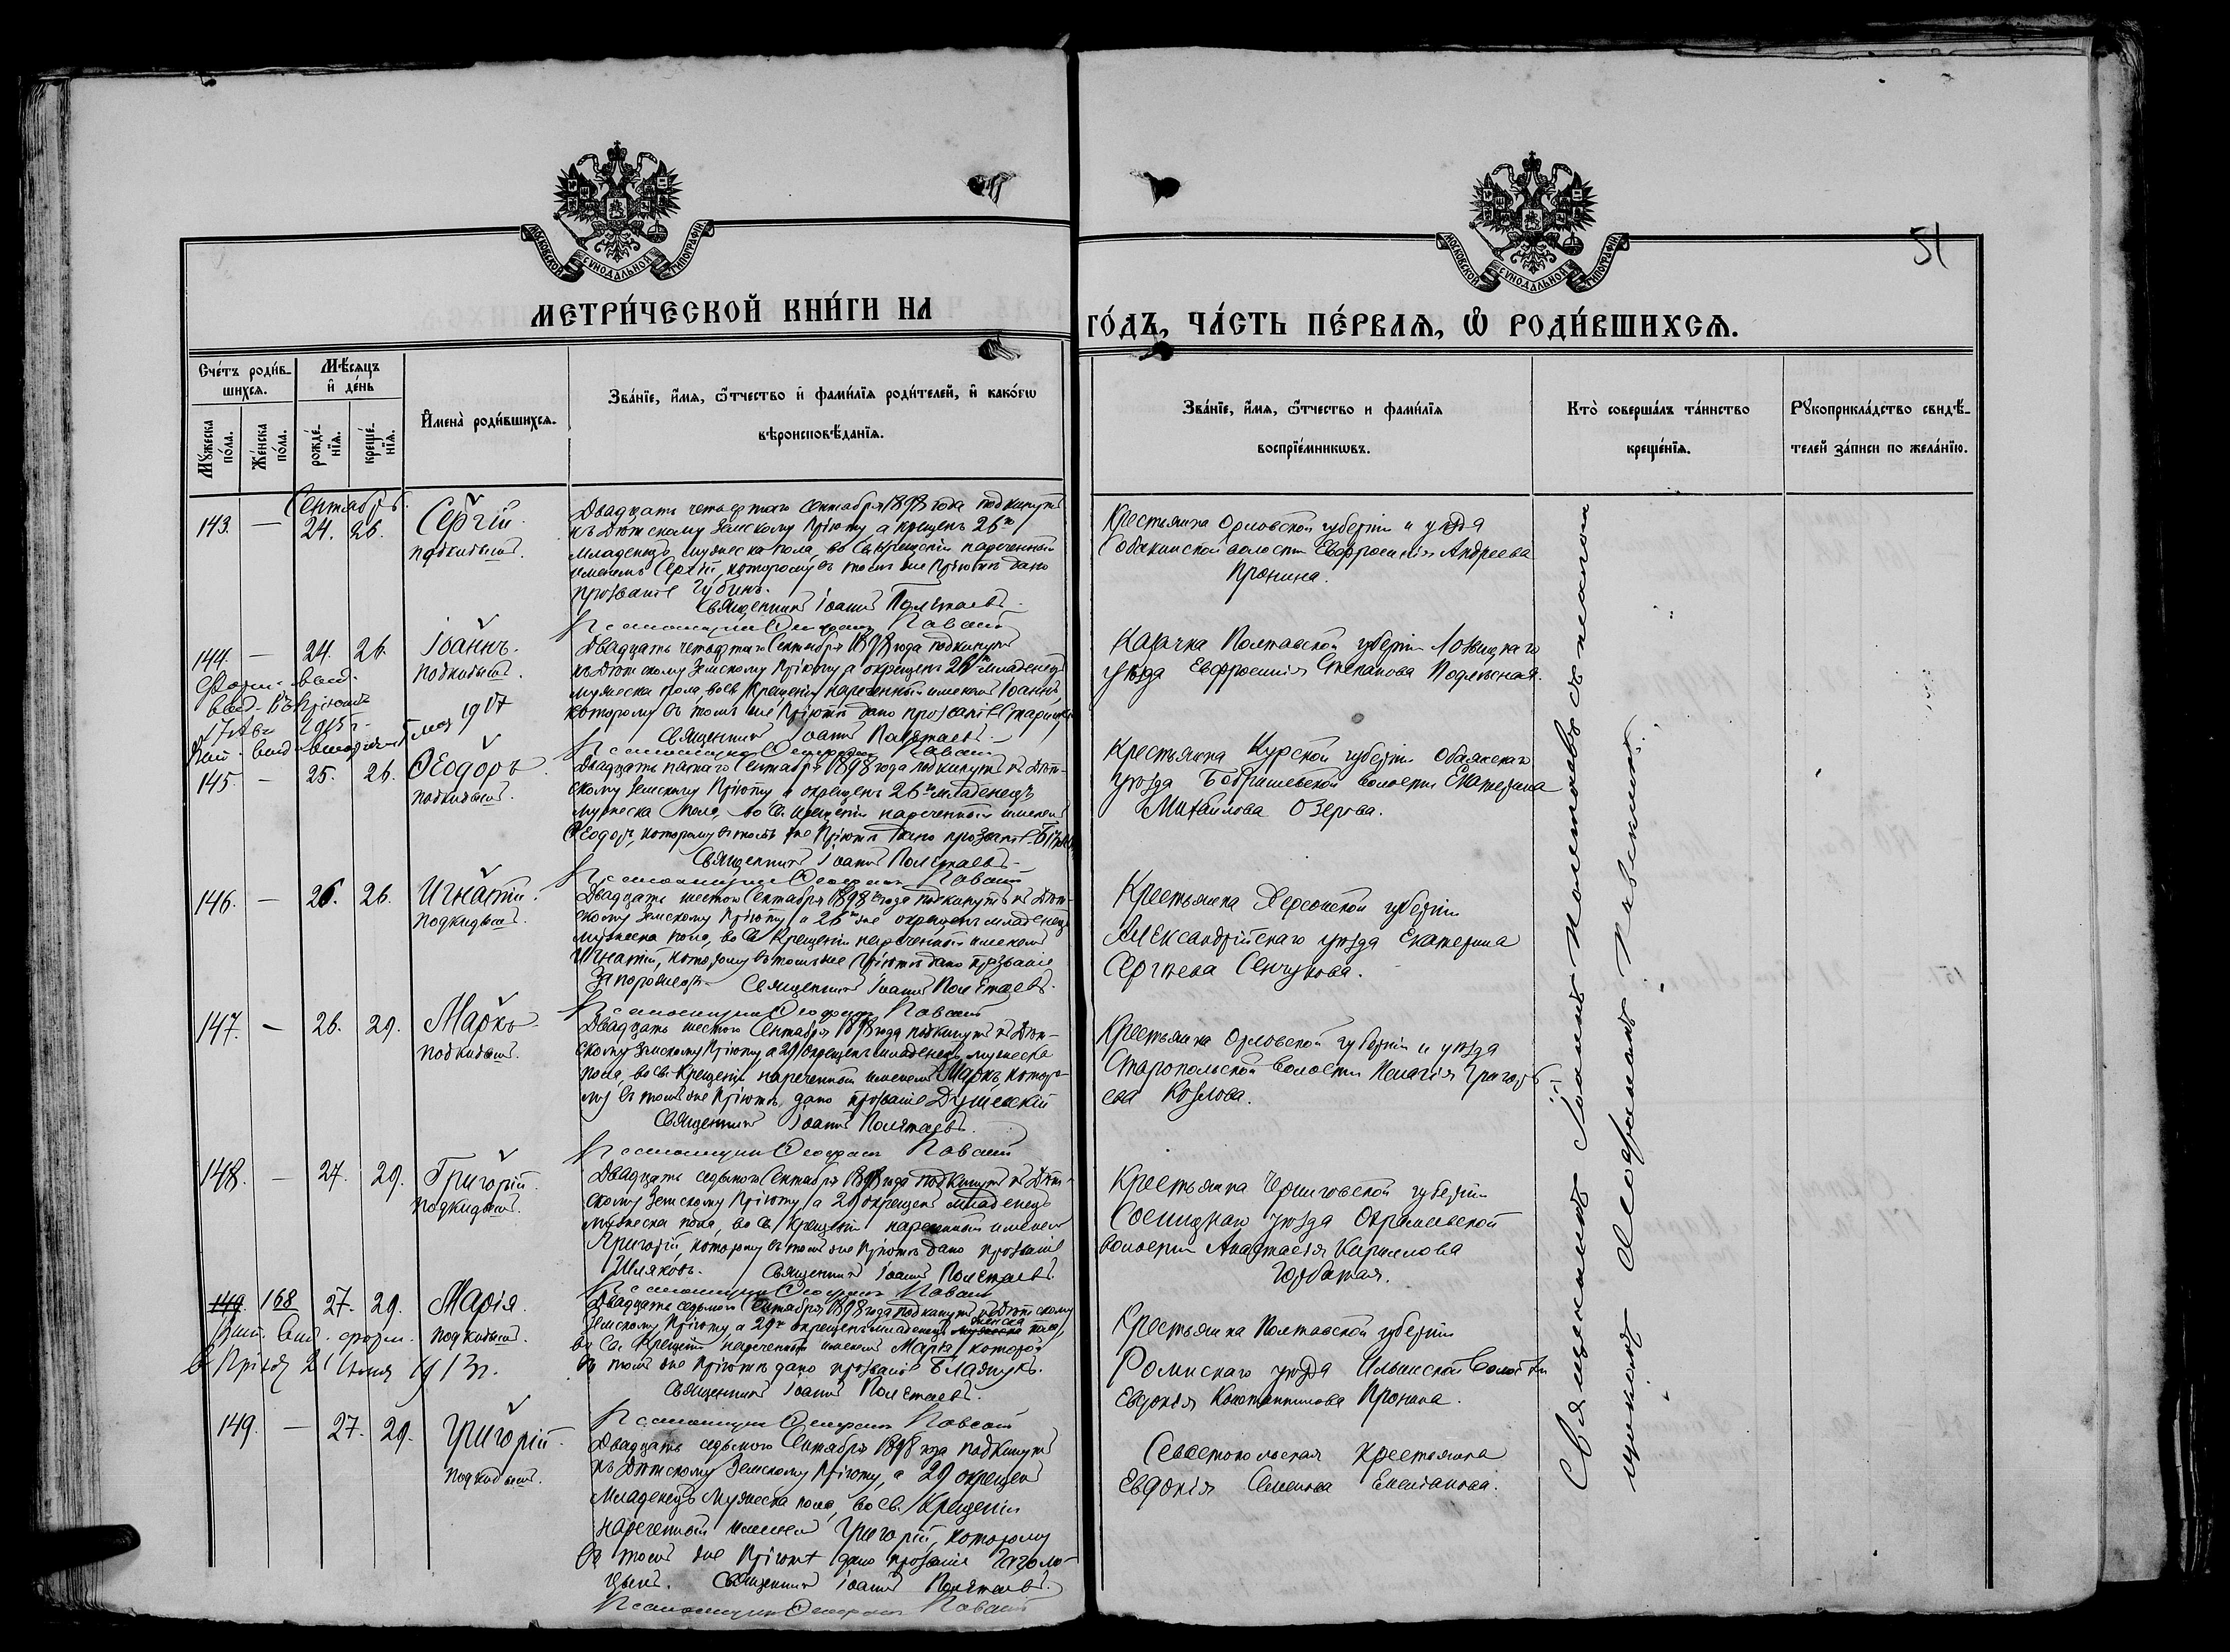 МОСКОВСКОЙ СѴНОДАЛЬНОЙ ТИПОГРАФІИ.
МОСКОВСКОЙ СѴНОДАЛЬНОЙ ТИПОГРАФІИ.
51
МЕТРИ́ЧЕСКОЙ КНИ́ГИ НА
ГО́ДЪ, ЧА́СТЬ ПЕ́РВАЯ, Ѡ҆ РОДИ́ВШИХСЯ.
Сче́тъ роди́в-
шихся.
Мѣ́сяцъ
и҆ де́нь
Му́жеска
по́ла.
Же́нска
по́ла.
рожде́-
нїя.
креще́-
нїя.
И҆мена̀ роди́вшихся.
Зва́нїе, и҆́мя, ѻ҆́тчество и҆ фами́лїя роди́телей, и҆ како́гѡ
вѣроисповѣ́данїя.
Зва́нїе, и҆́мя, ѻ҆́тчество и фами́лїя
воспрїе́мникѡвъ.
Кто̀ соверша́лъ та́инство
креще́нїя.
Рꙋкоприкла́дство свидѣ́-
телей за́писи по жела́нїю.
Сентябрь.
143. — 24. 26. Сергій
подкидыш.
Двадцать четвертаго Сентября 1898 года подкинутъ
къ Дѣтскому Земскому Пріюту, а крещенъ 26го
младенецъ мужеска пола, во Св. Крещеніи нареченный
именемъ Сергій, которому въ томъ же Пріютѣ дано
прозваніе Губинъ.
Священникъ Іоаннъ Полетаевъ
Крестьянка Орловской губерніи и уѣзда
Собакинской волости Евфросинія Андреева
Пронина.
144. — 24. 26. Іоаннъ.
подкидыш.
17 Авг 1915 г.
мая 1917
Двадцать четвертаго Сентября 1898 года подкинутъ
къ Дѣтскому Земскому Пріюту, а окрещенъ 26го младенецъ
мужеска пола, во Св. Крещеніи нареченный именемъ Іоаннъ,
которому въ томъ же Пріютѣ дано прозваніе
Священникъ Іоаннъ Полетаевъ
Казачка Полтавской губерніи Лохвицкаго
уѣзда Евфросинія Степанова Подлѣсная.
145. — 25. 26. Ѳеодоръ
подкидыш.
Двадцать пятаго Сентября 1898 года подкинутъ къ Дѣт-
скому Земскому Пріюту а окрещенъ 26го младенецъ
мужеска пола, во Св. Крещеніи нареченный именемъ
Ѳеодоръ, которому въ томъ же Пріютѣ дано прозваніе
Священникъ Іоаннъ Полетаевъ
Крестьянка Курской губерніи Обоянскаго
уѣзда Бобрышевской волости Екатерина
Михайлова Озерова.
146. — 26. 26. Игнатій.
подкидыш.
Двадцать шестого Сентября 1898 года подкинутъ къ Дѣт-
скому Земскому Пріюту, а 26го же окрещенъ младенецъ
мужеска пола, во Св. Крещеніи нареченный именемъ
Игнатій, которому въ томъ же Пріютѣ дано прозваніе
Запорожецъ Священникъ Іоаннъ Полетаевъ.
Крестьянка Херсонской губерніи
Александрійскаго уѣзда Екатерина
Сергѣева Сенчукова.
147. — 26. 29. Маркъ
подкидыш.
Двадцать шестого Сентября 1898 года подкинутъ къ Дѣт-
скому Земскому Пріюту, а 29 окрещенъ младенецъ мужеска
пола, во Св. Крещеніи нареченный именемъ Маркъ, которо-
му въ томъ же Пріютѣ дано прозваніе
Священникъ Іоаннъ Полетаевъ.
Крестьянка Орловской губерніи и уѣзда
Старопольской волости Пелагія Григорь-
ева Козлова.
148. — 27. 29. Григорій.
подкидыш.
Двадцать седьмого Сентября 1898 года подкинутъ къ Дѣт-
скому Земскому Пріюту, а 29 окрещенъ младенецъ
мужеска пола, во Св. Крещеніи нареченный именемъ
Григорій, которому въ томъ же Пріютѣ дано прозваніе
Шляховъ. Священникъ Іоаннъ Полетаевъ
Крестьянка Черниговской губерніи
Сосницкаго уѣзда
волости Анастасія Кириллова
Горбатая.
149. 168 27. 29. Марія.
подкидыш.
1913 г.
Двадцать седьмого Сентября 1898 года подкинутъ къ Дѣтскому
Земскому Пріюту а 29го окрещенъ младенецъ женска пола,
во Св. Крещеніи нареченный именемъ Марія, которой
въ томъ же Пріютѣ дано прозваніе
Священникъ Іоаннъ Полетаевъ.
Крестьянка Полтавской губерніи
Роменскаго уѣзда волости
Евдокія Константинова Пронина.
149. — 27. 29. Григорій
подкидыш.
Двадцать седьмого Сентября 1898 года подкинутъ
къ Дѣтскому Земскому Пріюту, а 29 окрещенъ
младенецъ мужеска пола, во Св. Крещеніи
нареченный именемъ Григорій, которому
въ томъ же Пріютѣ дано прозваніе
Священникъ Іоаннъ Полетаевъ.
Севастопольская крестьянка
Евдокія Семенова
Священникъ Іоаннъ Полетаевъ съ псалом-
щикомъ